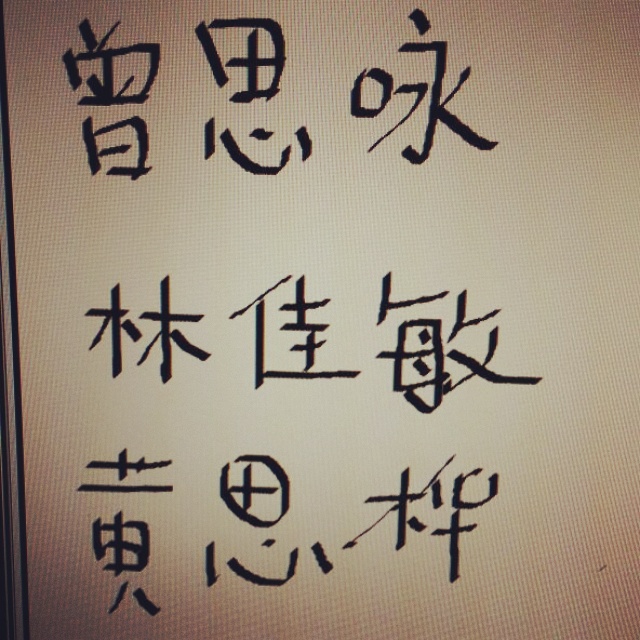 曾思咏
林佳敏
黄思桦